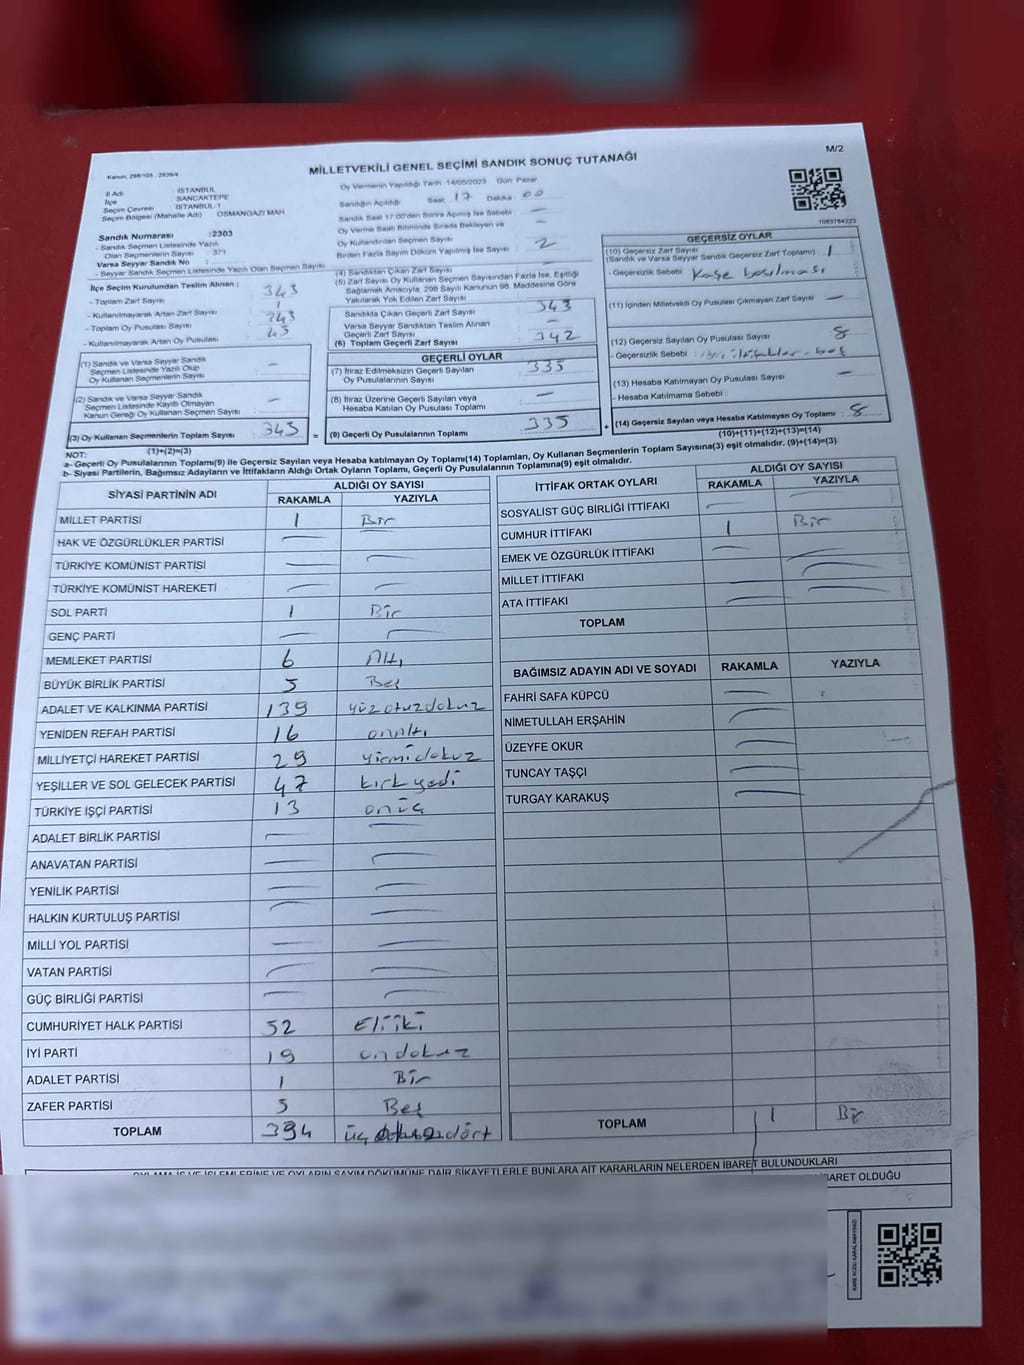 M/2
MİLLETVEKİLİ GENEL SEÇİMİ SANDIK SONUÇ TUTANAĞI
Kanun: 298/105 , 2839/4
İl Adı İSTANBUL
İlçe SANCAKTEPE
Seçim Çevresi İSTANBUL-1
Seçim Bölgesi (Mahalle Adı) : OSMANGAZİ MAH.
Sandık Numarası :2303
- Sandık Seçmen Listesinde Yazılı
Olan Seçmenlerin Sayısı : 371
Varsa Seyyar Sandık No :
- Seyyar Sandık Seçmen Listesinde Yazılı Olan Seçmen Sayısı
İlçe Seçim Kurulundan Teslim Alınan ;
- Toplam Zarf Sayısı 343
- Kullanılmayarak Artan Zarf Sayısı
- Toplam Oy Pusulası Sayısı
- Kullanılmayarak Artan Oy Pusulası
(1) Sandık ve Varsa Seyyar Sandık
Seçmen Listesinde Yazılı Olup
Oy Kullanan Seçmenlerin Sayısı : –
(2) Sandık ve Varsa Seyyar Sandık
Seçmen Listesinde Kayıtlı Olmayan
Kanun Gereği Oy Kullanan Seçmen Sayısı : –
(3) Oy Kullanan Seçmenlerin Toplam Sayısı : 343
(1)+(2)=(3)
Oy Vermenin Yapıldığı Tarih :14/05/2023 Gün: Pazar
Sandığın Açıldığı Saat : 17 Dakika : 00
Sandık Saat 17:00'den Sonra Açılmış İse Sebebi : –
Oy Verme Saati Bitiminde Sırada Bekleyen ve
Oy Kullandırılan Seçmen Sayısı –
Birden Fazla Sayım Döküm Yapılmış İse Sayısı 2
(4) Sandıktan Çıkan Zarf Sayısı –
(5) Zarf Sayısı Oy Kullanan Seçmen Sayısından Fazla İse, Eşitliği
Sağlamak Amacıyla, 298 Sayılı Kanunun 98. Maddesine Göre
Yakılarak Yok Edilen Zarf Sayısı
Sandıkta Çıkan Geçerli Zarf Sayısı 343
Varsa Seyyar Sandıktan Teslim Alınan
Geçerli Zarf Sayısı –
(6) Toplam Geçerli Zarf Sayısı 342
GEÇERLİ OYLAR
(7) İtiraz Edilmeksizin Geçerli Sayılan
Oy Pusulalarının Sayısı : 335
(8) İtiraz Üzerine Geçerli Sayılan veya
Hesaba Katılan Oy Pusulası Toplamı : –
= (9) Geçerli Oy Pusulalarının Toplamı : 335
1083784223
GEÇERSİZ OYLAR
(10) Geçersiz Zarf Sayısı
(Sandık ve Varsa Seyyar Sandık Geçersiz Zarf Toplamı) : 1
- Geçersizlik Sebebi : Kaşe basılması
(11) İçinden Milletvekili Oy Pusulası Çıkmayan Zarf Sayısı : –
(12) Geçersiz Sayılan Oy Pusulası Sayısı 8
- Geçersizlik Sebebi :
(13) Hesaba Katılmayan Oy Pusulası Sayısı –
- Hesaba Katılmama Sebebi :
+ (14) Geçersiz Sayılan veya Hesaba Katılmayan Oy Toplamı : 8
(10)+(11)+(12)+(13)=(14)
NOT:
a- Geçerli Oy Pusulalarının Toplamı(9) ile Geçersiz Sayılan veya Hesaba katılmayan Oy Toplamı(14) Toplamları, Oy Kullanan Seçmenlerin Toplam Sayısına(3) eşit olmalıdır. (9)+(14)=(3)
b- Siyasi Partilerin, Bağımsız Adayların ve İttifakların Aldığı Ortak Oyların Toplamı, Geçerli Oy Pusulalarının Toplamına(9) eşit olmalıdır.
SİYASİ PARTİNİN ADI ALDIĞI OY SAYISI
RAKAMLA YAZIYLA
MİLLET PARTİSİ 1 Bir
HAK VE ÖZGÜRLÜKLER PARTİSİ –
TÜRKİYE KOMÜNİST PARTİSİ – –
TÜRKİYE KOMÜNİST HAREKETİ – –
SOL PARTİ 1 Bir
GENÇ PARTİ – –
MEMLEKET PARTİSİ 6 Altı
BÜYÜK BİRLİK PARTİSİ 5 Beş
ADALET VE KALKINMA PARTİSİ 139 yüzotuzdokuz
YENİDEN REFAH PARTİSİ 16 onaltı
MİLLİYETÇİ HAREKET PARTİSİ 29 yirmidokuz
YEŞİLLER VE SOL GELECEK PARTİSİ 47 kırkyedi
TÜRKİYE İŞÇİ PARTİSİ 13 onüç
ADALET BİRLİK PARTİSİ – –
ANAVATAN PARTİSİ – –
YENİLİK PARTİSİ – –
HALKIN KURTULUŞ PARTİSİ – –
MİLLİ YOL PARTİSİ – –
VATAN PARTİSİ – –
GÜÇ BİRLİĞİ PARTİSİ – –
CUMHURİYET HALK PARTİSİ 52 Elliiki
İYİ PARTİ 19 ondokuz
ADALET PARTİSİ 1 Bir
ZAFER PARTİSİ 5 Beş
TOPLAM 394
İTTİFAK ORTAK OYLARI ALDIĞI OY SAYISI
RAKAMLA YAZIYLA
SOSYALİST GÜÇ BİRLİĞİ İTTİFAKI – –
CUMHUR İTTİFAKI 1 Bir
EMEK VE ÖZGÜRLÜK İTTİFAKI – –
MİLLET İTTİFAKI – –
ATA İTTİFAKI – –
TOPLAM
BAĞIMSIZ ADAYIN ADI VE SOYADI RAKAMLA YAZIYLA
FAHRİ SAFA KÜPCÜ –
NİMETULLAH ERŞAHİN –
ÜZEYFE OKUR –
TUNCAY TAŞÇI –
TURGAY KARAKUŞ –
TOPLAM 1 Bir
OYLAMA İŞ VE İŞLEMLERİNE VE OYLARIN SAYIM DÖKÜMÜNE DAİR ŞİKAYETLERLE BUNLARA AİT KARARLARIN NELERDEN İBARET BULUNDUKLARI
İBARET OLDUĞU
KARE KODU KARALAMAYINIZ!